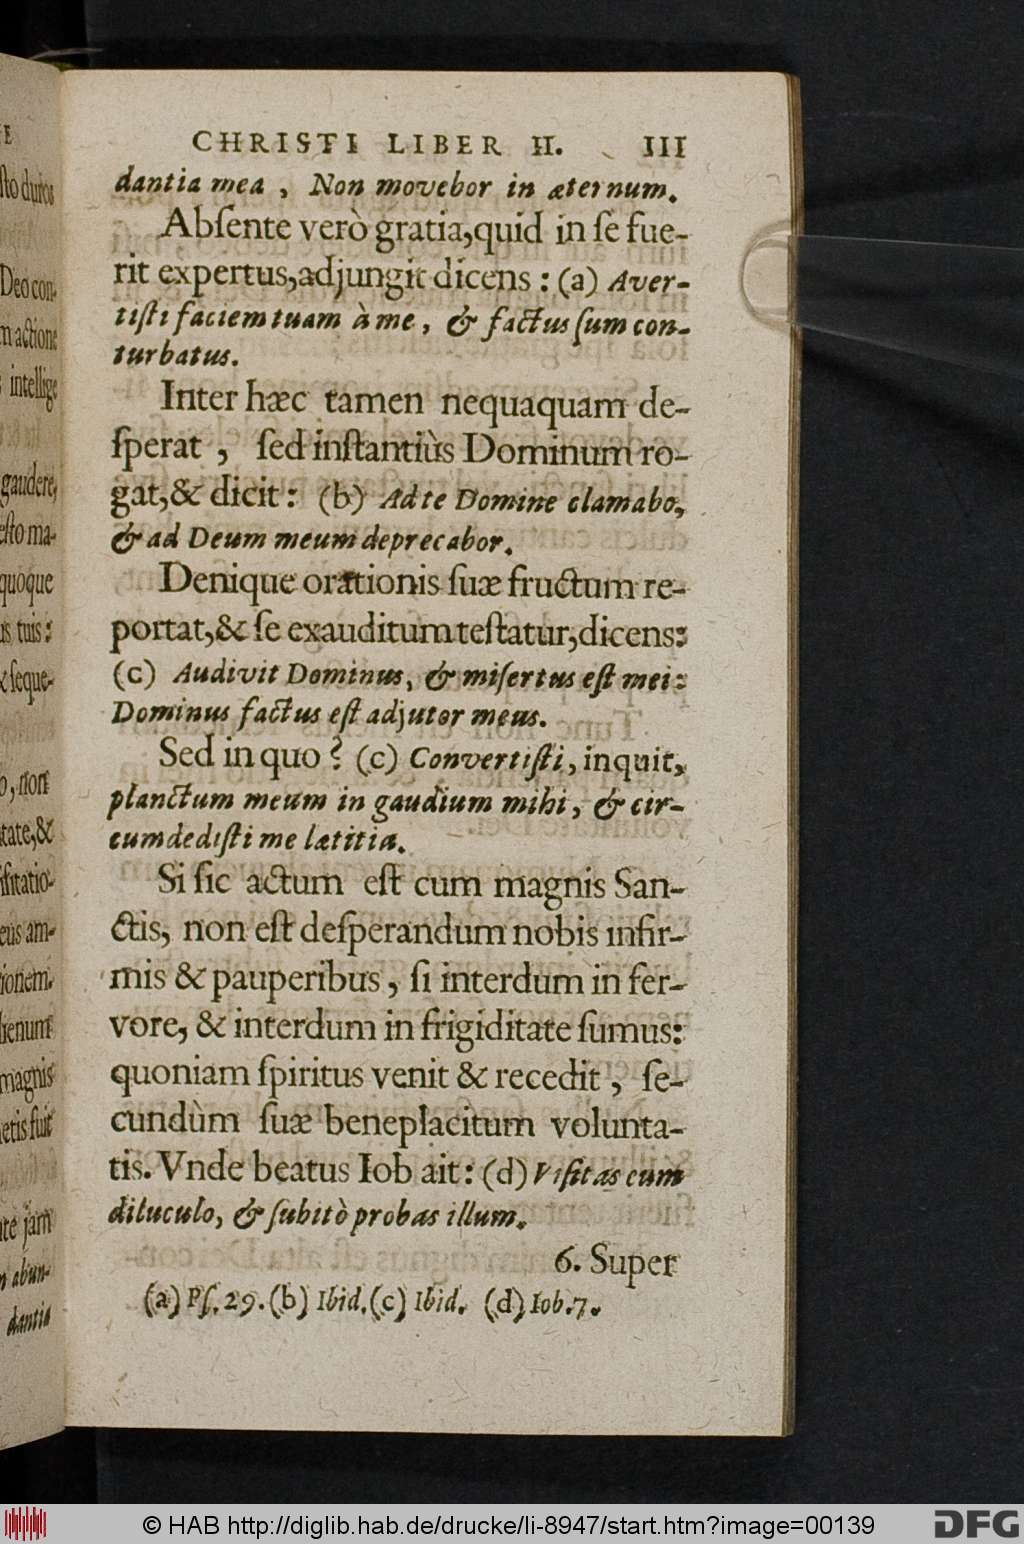 CHRISTI LIBER II. III
dantia mea, Non movebor in æternum.
Absente verò gratia, quid in se fue-
rit expertus, adjungit dicens: (a) Aver-
tisti faciem tuam à me, & factus sum con-
turbatus.
Inter hæc tamen nequaquam de-
sperat, sed instantiùs Dominum ro-
gat, & dicit: (b) Ad te Domine clamabo,
& ad Deum meum deprecabor.
Denique orationis suæ fructum re-
portat, & se exauditum testatur, dicens:
(c) Audivit Dominus, & misertus est mei:
Dominus factus est adjutor meus.
Sed in quo? (c) Convertisti, inquit,
planctum meum in gaudium mihi, & cir-
cumdedisti me lætitia.
Si sic actum est cum magnis San-
ctis, non est desperandum nobis infir-
mis & pauperibus, si interdum in fer-
vore, & interdum in frigiditate sumus:
quoniam spiritus venit & recedit, se-
cundùm suæ beneplacitum volunta-
tis. Vnde beatus Iob ait: (d) Visitas eum
diluculo, & subitò probas illum.
6. Super
(a) Ps. 29. (b) Ibid. (c) Ibid. (d) Iob. 7.
© HAB http://diglib.hab.de/drucke/li-8947/start.htm?image=00139
DFG